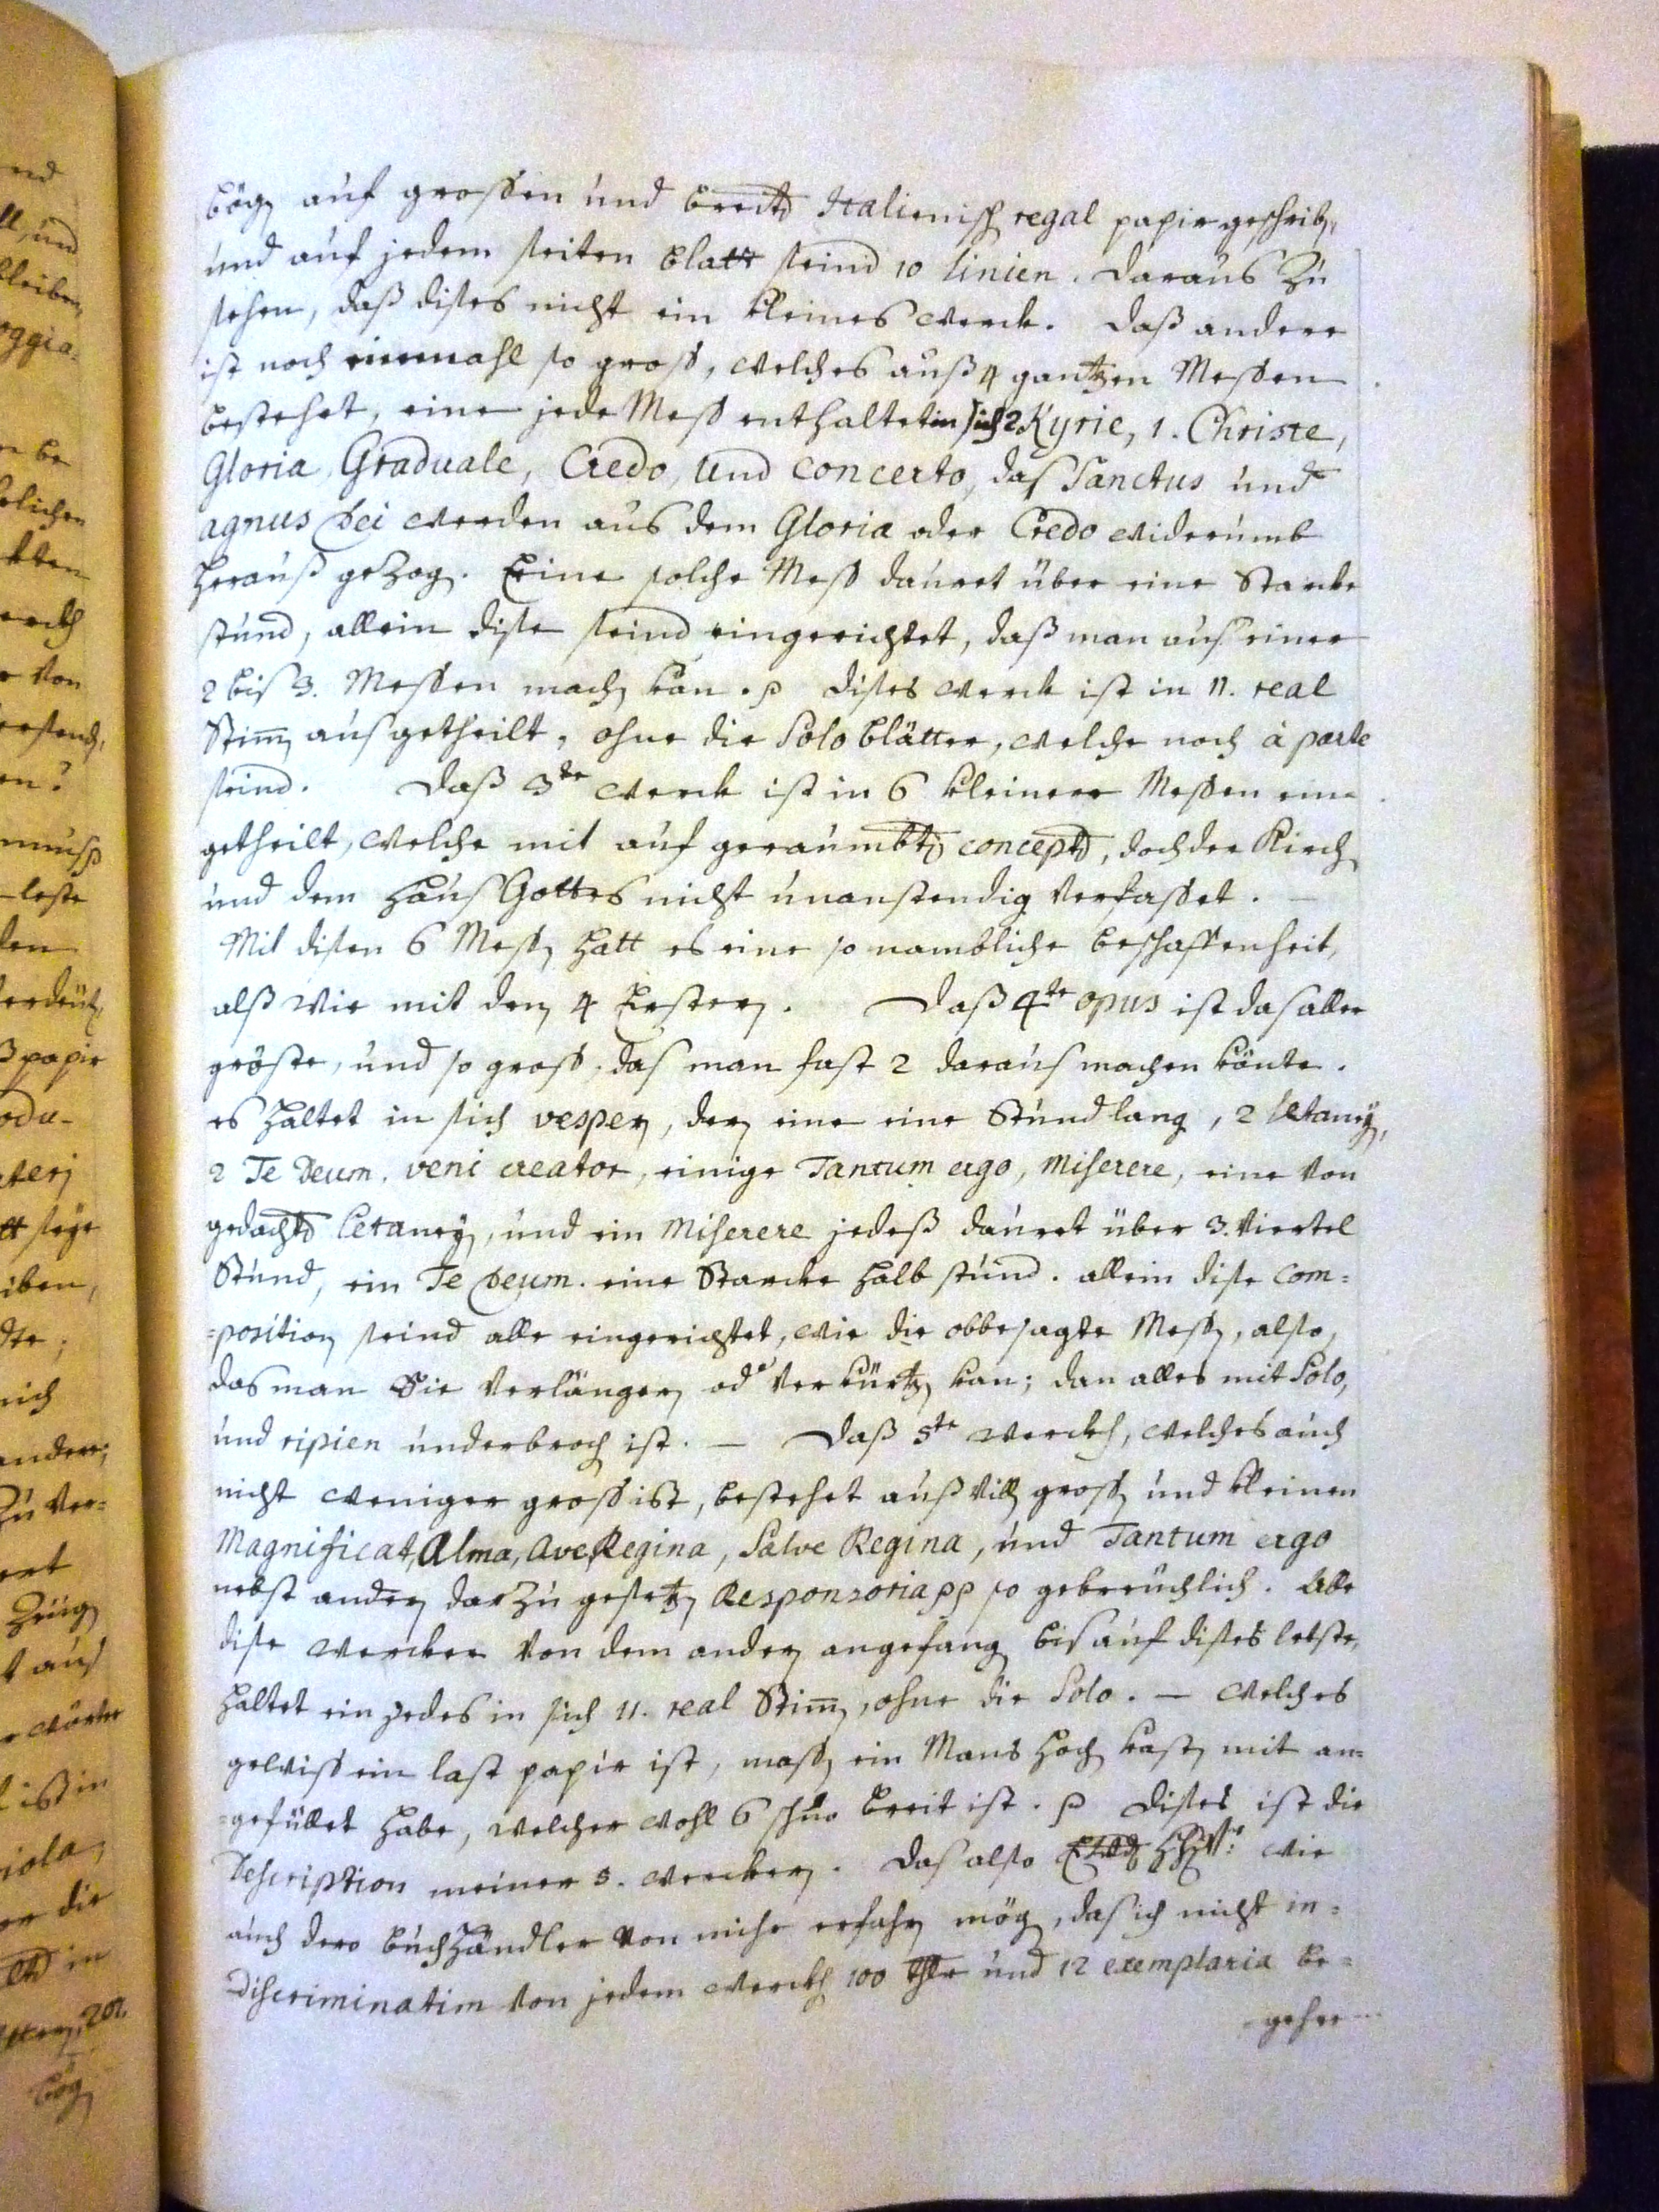 bög auf grossen und breitⁿ Italienisch regal papir geschrib,
und auf jedem seiten blatt seind 10 linien. daraus Zu
sehen, daß dises nicht ein kleines werck. Daß andere
ist noch einmahl so gross, welches auß 4 gantzen Messen
bestehet, eine jede Mess enthaltet in sich 2 Kyrie, 1. Christe,
Gloria, Graduale, Credo, und concerto, das Sanctus und
agnus Dei werden aus dem Gloria oder Credo widerumb
herauß gezog. Eine solche Mess dauret über eine Starcke
stund, allein dise seind eingerichtet, daß man aus einer
2 bis 3. Messen mach kan. p dises werck ist in 11. real
Stim ausgetheilt, ohne die Solo blätter, welche noch à parte
seind. Daß 3te werck ist in 6 kleinere Messen ein
getheilt, welche mit auf geraumbt concept, doch der Kirch
und dem haus Gottes nicht unanstendig verfasset. —
Mit disen 6 Mess hatt es eine so nambliche beschaffenheit,
alß wie mit den 4 Ersten. Daß 4te opus ist das aller
gröste, und so gross, das man fast 2 daraus machen könte.
es haltet in sich vesper, der eine eine Stund lang, 2 Letaney,
2 Te Deum. veni creator, einige Tantum ergo, Miserere, eine von
gedacht Letaney, und ein Miserere jedeß dauret über 3. viertel
Stund, ein Te Deum. eine Starcke halb stund. allein dise Com=
=position seind alle eingerichtet, wie die obbesagte Mess, also,
das man Sie verlänger od verkürtz kan; dan alles mit Solo,
und ripien underbroch ist. — Daß 5te werckh, welches auch
nicht weniger gross ist, bestehet auß vill gross und kleinen
Magnificat, Alma, Ave Regina, Salve Regina, und Tantum ergo
nebst ander darzu gesetz Responsoria pp so gebreuchlich. Alle
dise wercker von dem ander angefang bis auf dises letste,
haltet ein jedes in sich 11. real Stim, ohne die Solo. — welches
gewiss ein last papir ist, mass ein Mans hoch kast mit an=
=gefüllet habe, welcher wohl 6 schuo breit ist. p dises ist die
Description meiner 5. wercker. das also wie
auch dero buchhändler von mihr erfahr mög, das ich nicht in=
discriminatim von jedem werckh 100 thlr und 12 exemplaria be=
gehre